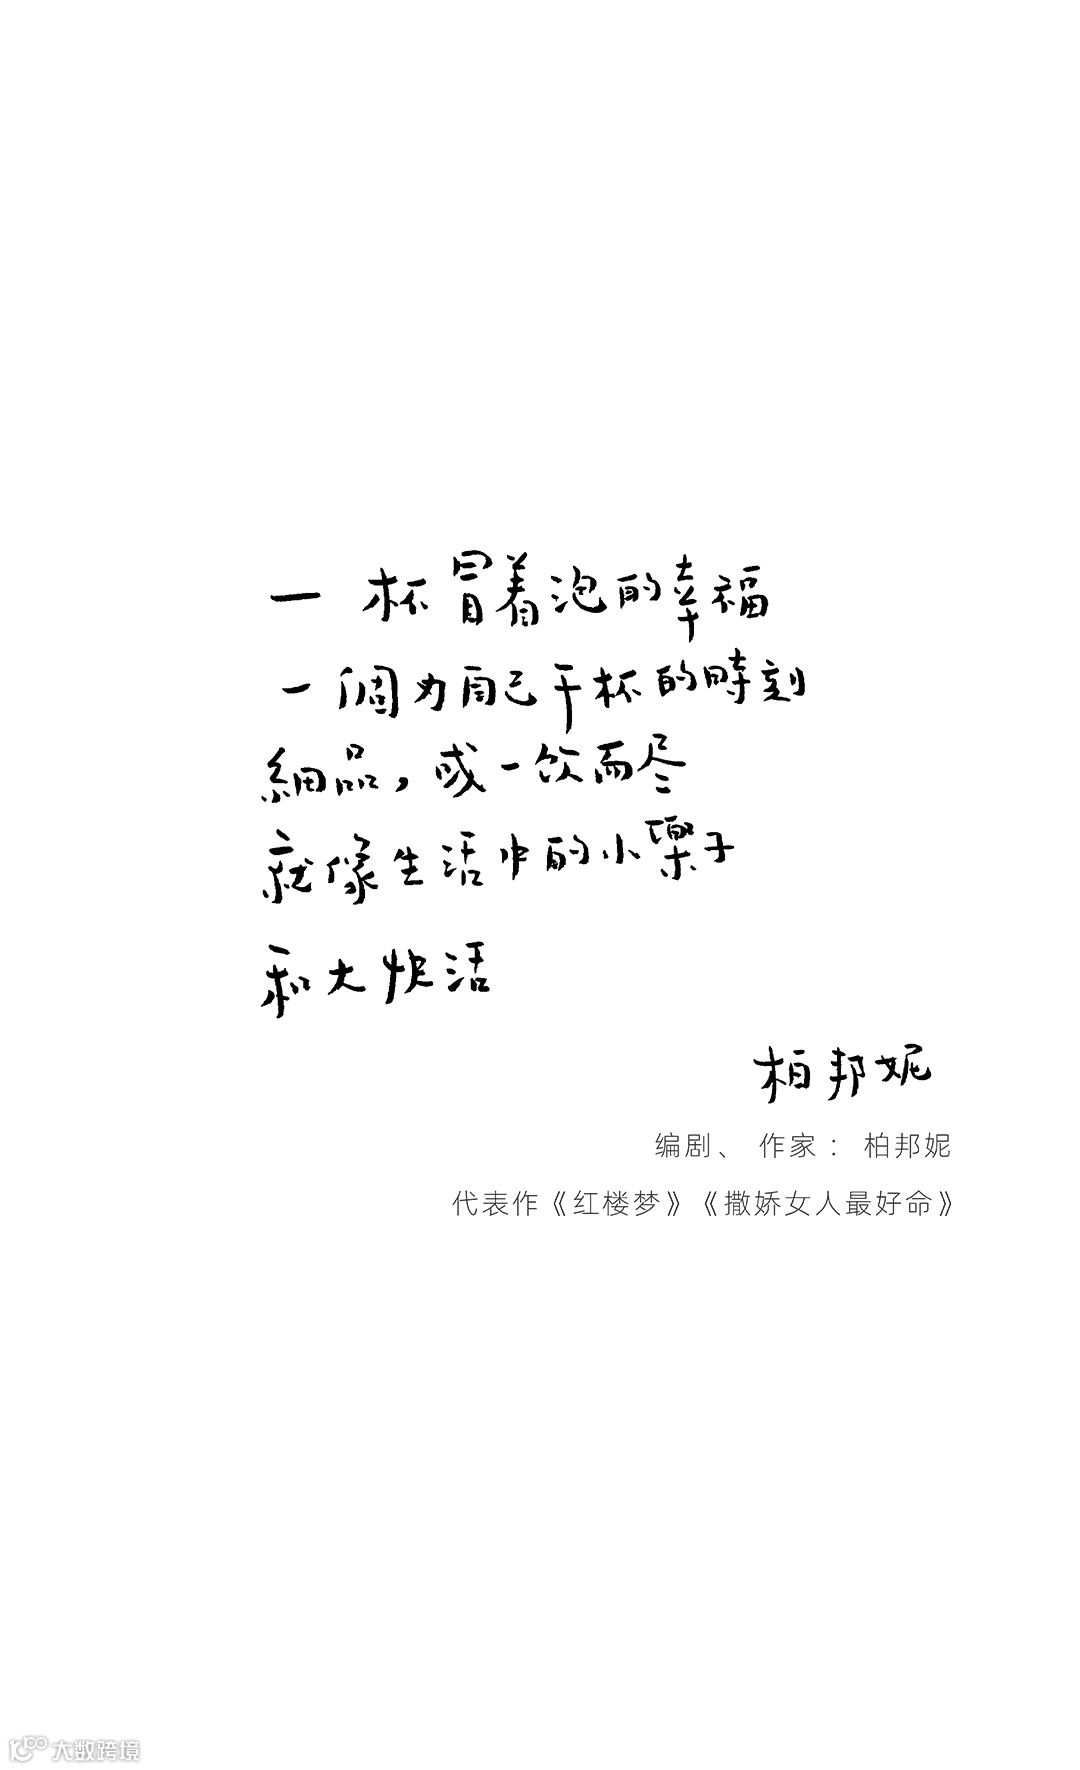 一杯冒着泡的幸福
一個为自己干杯的時刻
細品，或一饮而尽
就像生活中的小樂子
和大快活
柏邦妮
编剧、 作家： 柏邦妮
代表作《红楼梦》《撒娇女人最好命》
大数跨境